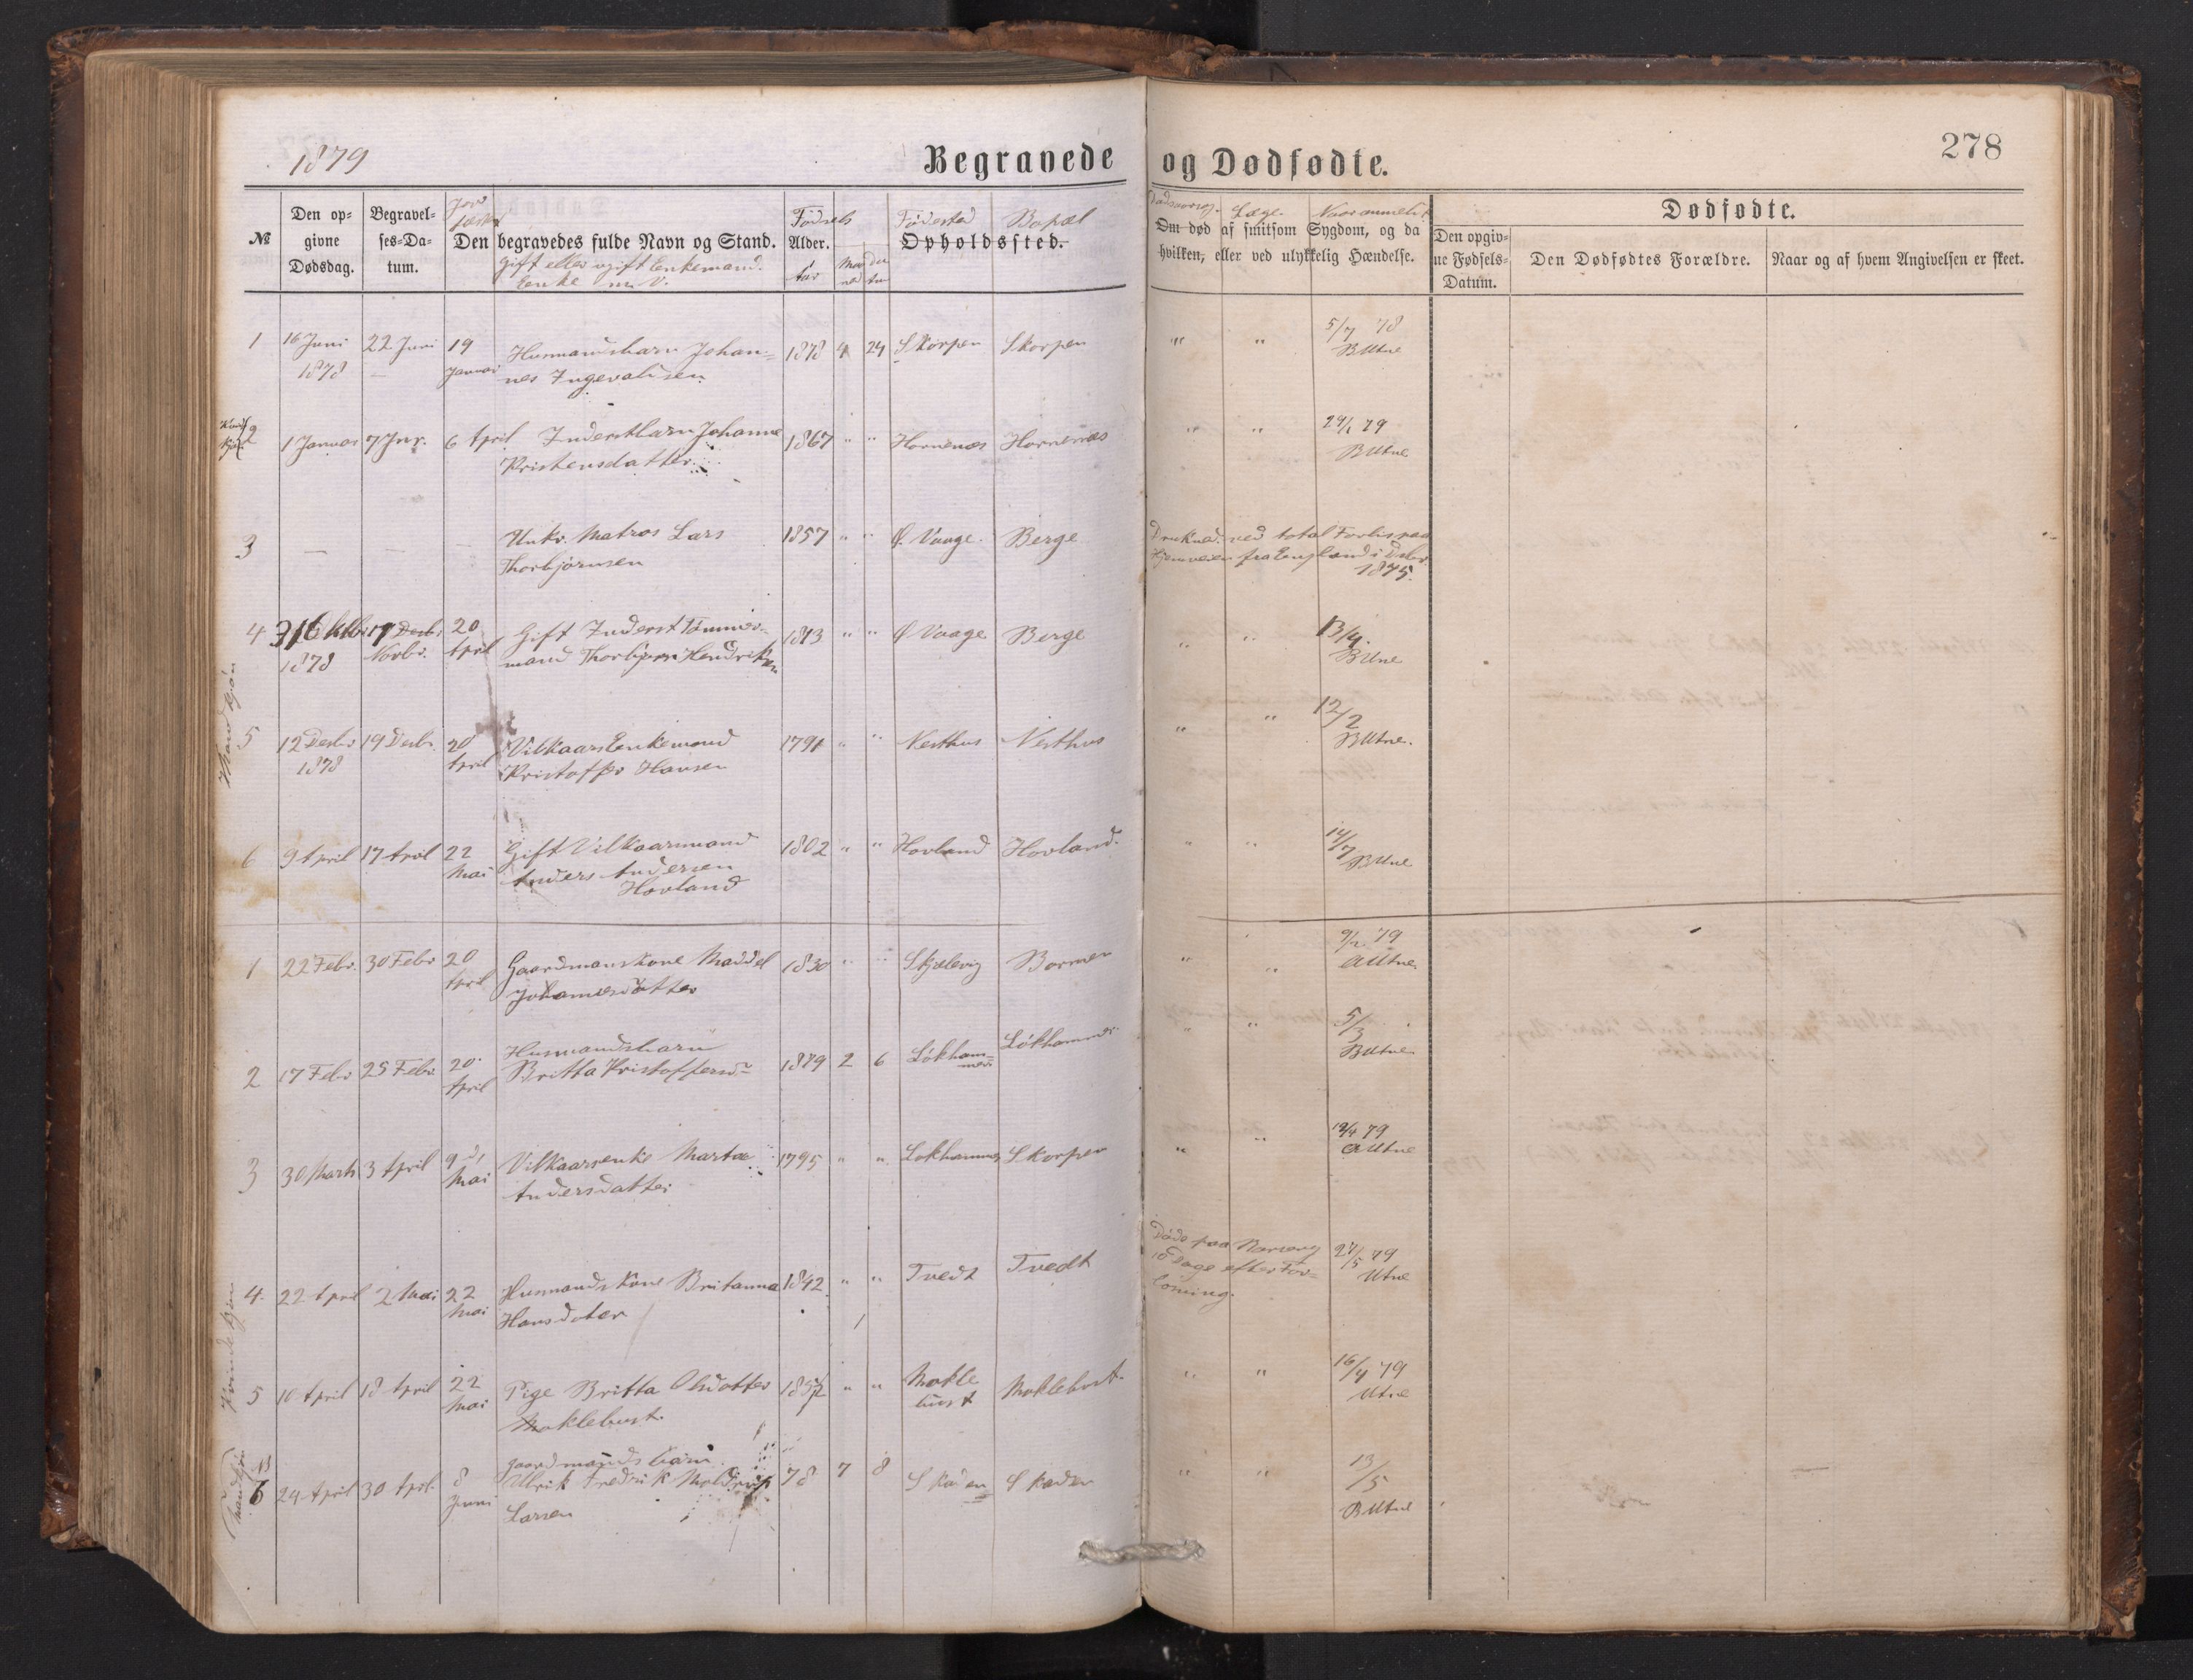 1879
Begravede og Dødfødte.
278
№
Den opgivne Dødsdag.
Begravelses-Datum.
Jord fæstet
Den begravedes fulde Navn og Stand.
Gift eller ugift Enkemand.
Enke m. V.
Fødsels
Alder.
Aar
Fødested
Bopæl
Opholdssted.
Dødsaarsag. Læge. Naar anmeldt
Om død af smitsom Sygdom, og da
hvilken, eller ved ulykkelig Hændelse.
Dødfødte.
Den opgivne Fødsels-Datum.
Den Dødfødtes Forældre.
Naar og af hvem Angivelsen er skeet.
1 16 Juni 22 Juni 19 Husmandsbarn Johan- 1878 4 24 Skorpen Skorpen " " 5/7 78
1878 Januar nes Ingevaldsen BUtne
2 1 Januar 7 Jnr. 6 April Inderstbarn Johanne 1867 " " Hornenæs Hornenæs " " 29/1 79
Kristensdatter BUtne
3 — — — Unkr. Matros Lars 1857 " " Ø. Vaage. Berge Druknad. ved total Forlis paa
Thorbjørnsen Hjemveien fra England i Desbr.
1875.
Mandkjøn
4 20 Gift Inderst Tømmer- " " Ø Vaage Berge " " 13/4.
1878 Novbr. April mand Thorbjørn Hendriksen BUtne
5 12 Desbr 19 Desbr. 20 Vilkaars Enkemand 1791 " " Nesthus Nesthus " " 12/2
1878 April Kristoffer Hansen BUtne.
6 9 April 17 April 22 Gift Vilkaarsmand 1802 " " Hovland Hovland. " " 14/7
Mai Anders Andersen BUtne
Hovland
1 22 Febr. 30 Febr 20 Gaardmanskone Maddel 1830 " " Skjelevig Bornen " " 9/2 79
April Johannesdatter AUtne
2 17 Febr 25 Febr. 20 Husmandsbarn 1879 2 6 Løkham- Løkhammer " " 5/3
April Britta Kristoffersd. mer BUtne
3 30 Marts 3 April 9 d. Vilkaarsenke Martoe 1795 " " Lokhammer Skorpen " " 19/4 79
Mai Andersdatter AUtne
Kvindekjøn
4. 22 April 2 Mai 22 Husmandskone Britanna 1842. " " Tvedt Tvedt Døde paa Barseng 24/5 79
Mai Hansdoter 10 Dage efter For- Utne
løsning.
5 10 April 18 April 22 Pige Britta Olsdotter " " Mokle Moklebust. " " 16/4 79
Mai Moklebust. bust Utne
Mandkjøn
24 April 30 Aprl. 8 gaardmands barn 78 7 8 Skaden Skaden " " 13/5
Juni Ulrik Fredrik BUtne
Larsen